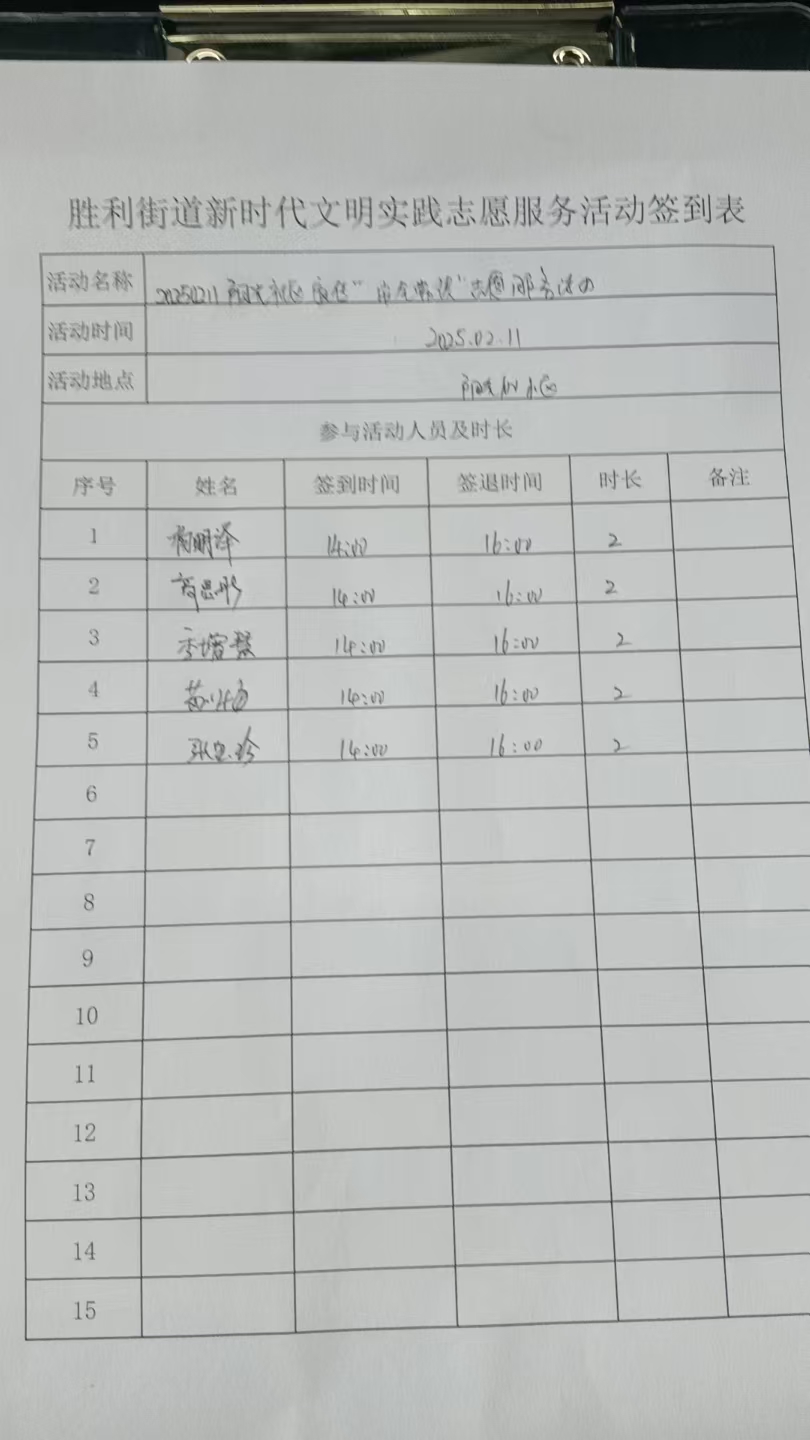 胜利街道新时代文明实践志愿服务活动签到表
活动名称 20250211阳光社区 "安全常谈"志愿服务活动
活动时间 2025.02.11
活动地点 阳光 小区
参与活动人员及时长
序号 姓名 签到时间 签退时间 时长 备注
1 明泽 14:00 16:00 2
2 14:00 16:00 2
3 14:00 16:00 2
4 14:00 16:00 2
5 张 珍 14:00 16:00 2
6
7
8
9
10
11
12
13
14
15